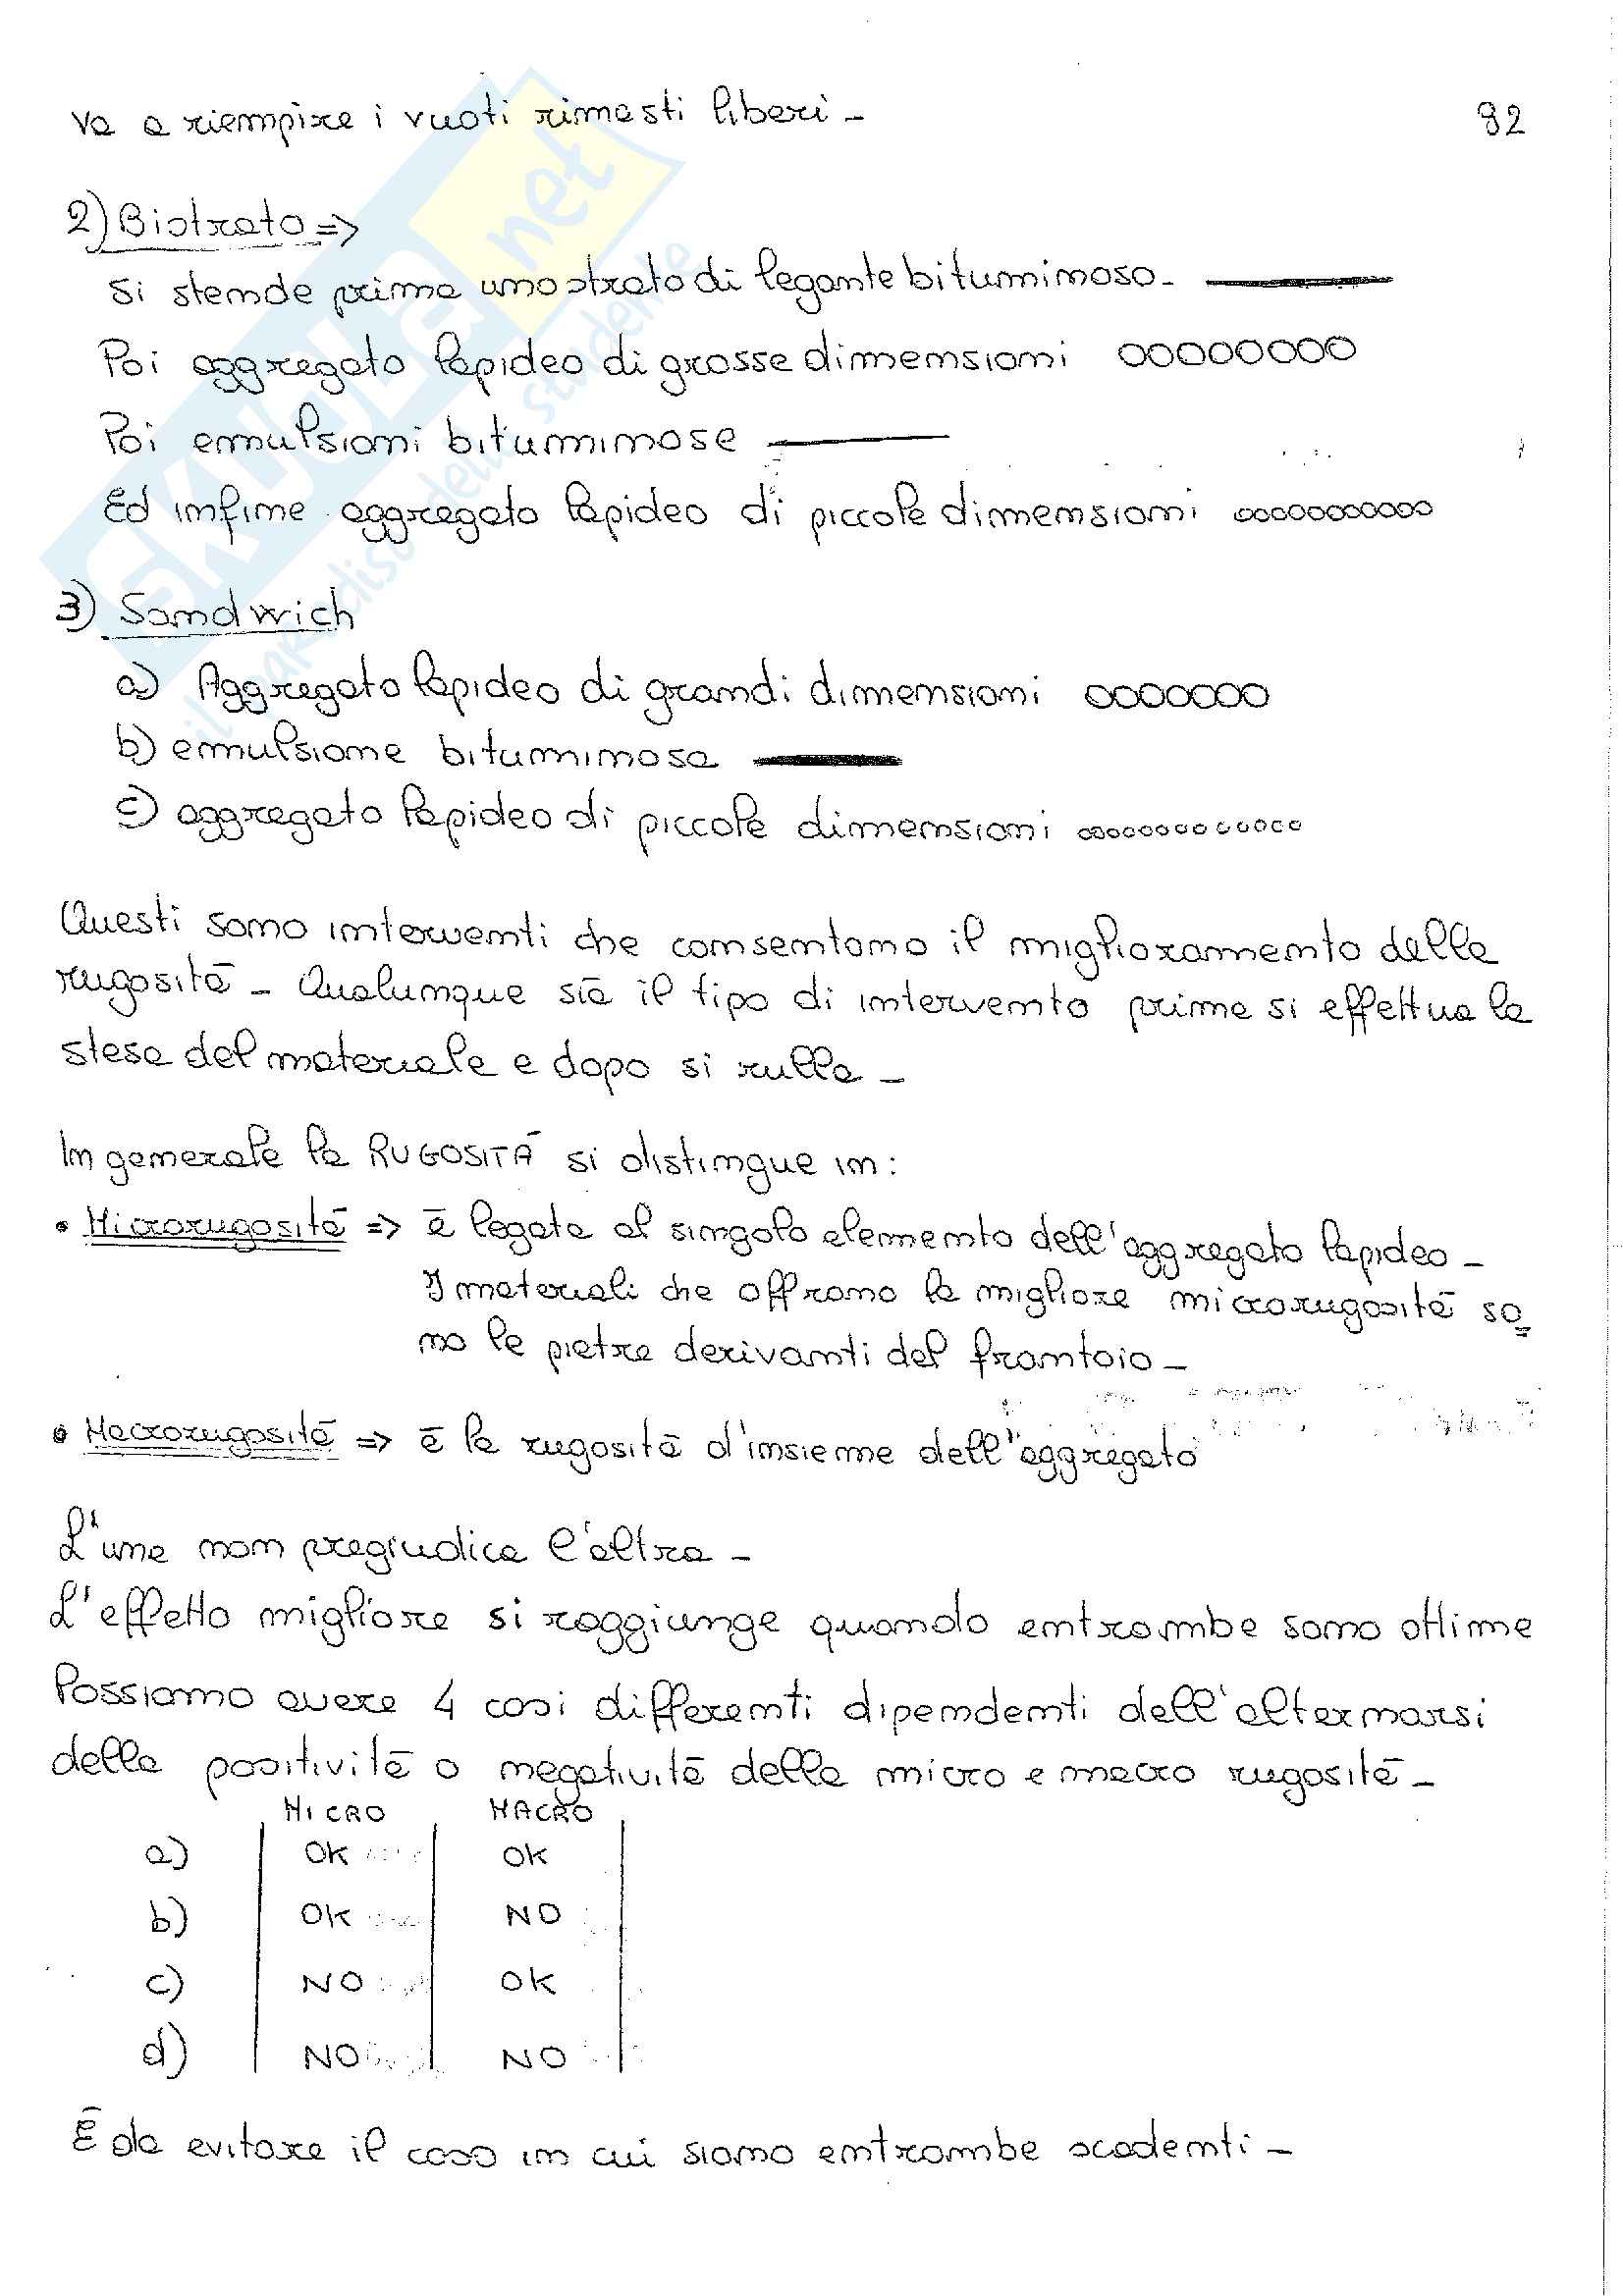 va a riempire i vuoti rimasti liberi -
92
2) Bistrato =>
Si stende prima uno strato di legante bituminoso -
Poi aggregato lapideo di grosse dimensioni
Poi emulsioni bituminose
Ed infine aggregato lapideo di piccole dimensioni
3) Sandwich
a) Aggregato lapideo di grandi dimensioni
b) emulsione bituminosa
c) aggregato lapideo di piccole dimensioni
Questi sono interventi che consentono il miglioramento della
rugosità - Qualunque sia il tipo di intervento prima si effettua la
stesa del materiale e dopo si rulla -
In generale la RUGOSITÀ si distingue in:
• Microrugosità => è legata al singolo elemento dell'aggregato lapideo -
I materiali che offrono la migliore microrugosità so=
no le pietre derivanti dal frantoio -
• Macrorugosità => è la rugosità d'insieme dell'aggregato
L'una non pregiudica l'altra -
L'effetto migliore si raggiunge quando entrambe sono ottime
Possiamo avere 4 casi differenti dipendenti dall'alternarsi
della positività o negatività della micro e macro rugosità -
MICRO MACRO
a) OK OK
b) OK NO
c) NO OK
d) NO NO
È da evitare il caso in cui siano entrambe scadenti -
skuola.net
il paradiso dello studente